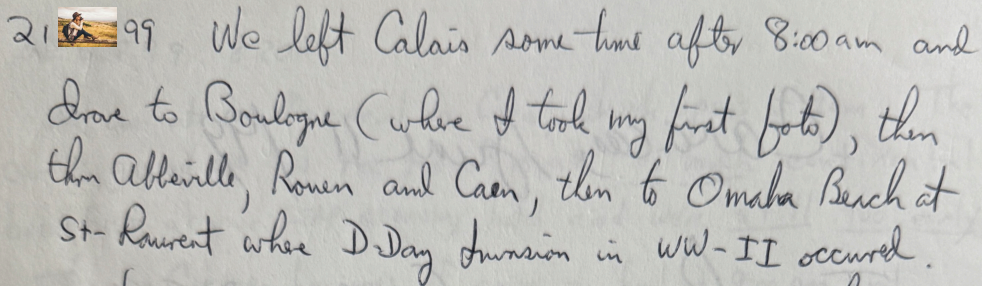 21 99 We left Calais some time after 8:00 am and
drove to Boulogne (where I took my first foto), then
thru Abbeville, Rouen and Caen, then to Omaha Beach at
St-Laurent where D-Day Invasion in WW-II occurred.